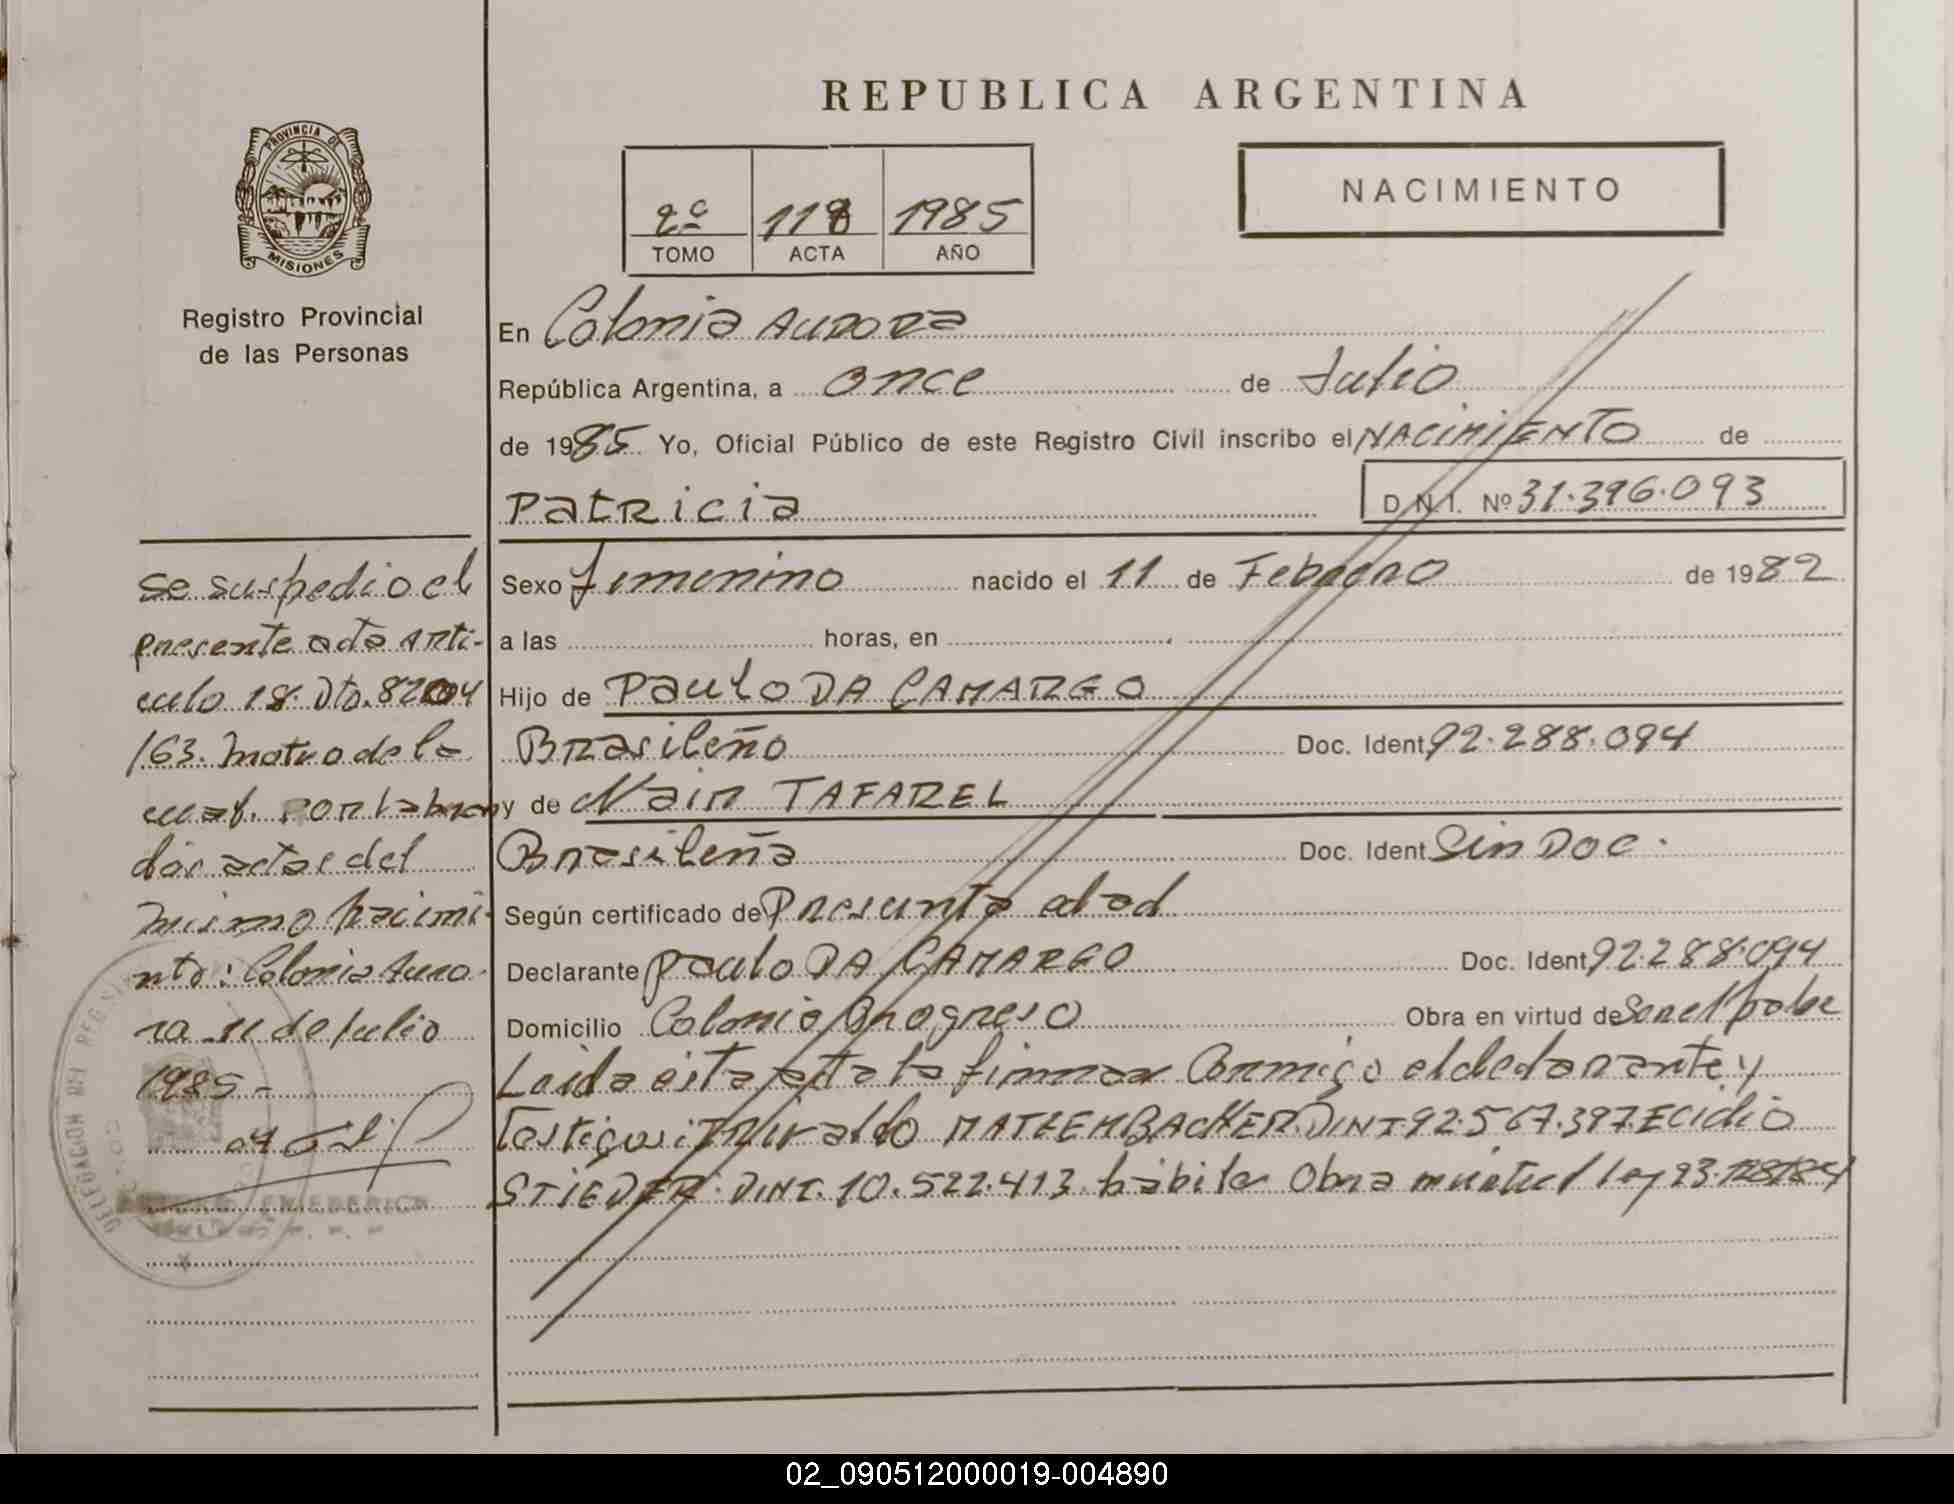 REPUBLICA ARGENTINA
PROVINCIA DE
MISIONES
Registro Provincial
de las Personas
2º 118 1985
TOMO ACTA AÑO
NACIMIENTO
En Colonia Aurora
República Argentina, a once de Julio
de 1985. Yo, Oficial Público de este Registro Civil inscribo el NACIMIENTO de
Patricia D.N.I. Nº 31.396.093
Sexo femenino nacido el 11 de Febrero de 1982
a las horas, en
Hijo de Paulo DA CAMARGO
Brasileño Doc. Ident. 92.288.094
y de Nair TAFAREL
Brasileña Doc. Ident Sin Doc.
Según certificado de Presunta edad
Declarante Paulo DA CAMARGO Doc. Ident. 92.288.094
Domicilio Colonia Progreso Obra en virtud de Ser el
Leida esta acta la firman Conmigo el declarante y
Testigos: MATZEMBACHER DINT 92.567.397. ECidio
STIEDER. DINT. 10.522.413 hábiles Obra ley 23.128/84
se suspedio el
presente acta arti-
culo 18. Dto. 8204
/63. motivo de la
cual. por labrar
dos actas del
mismo nacimi-
nto: Colonia Auro-
ra 11 de Julio
1985-
DELEGACION DEL REG
02_090512000019-004890